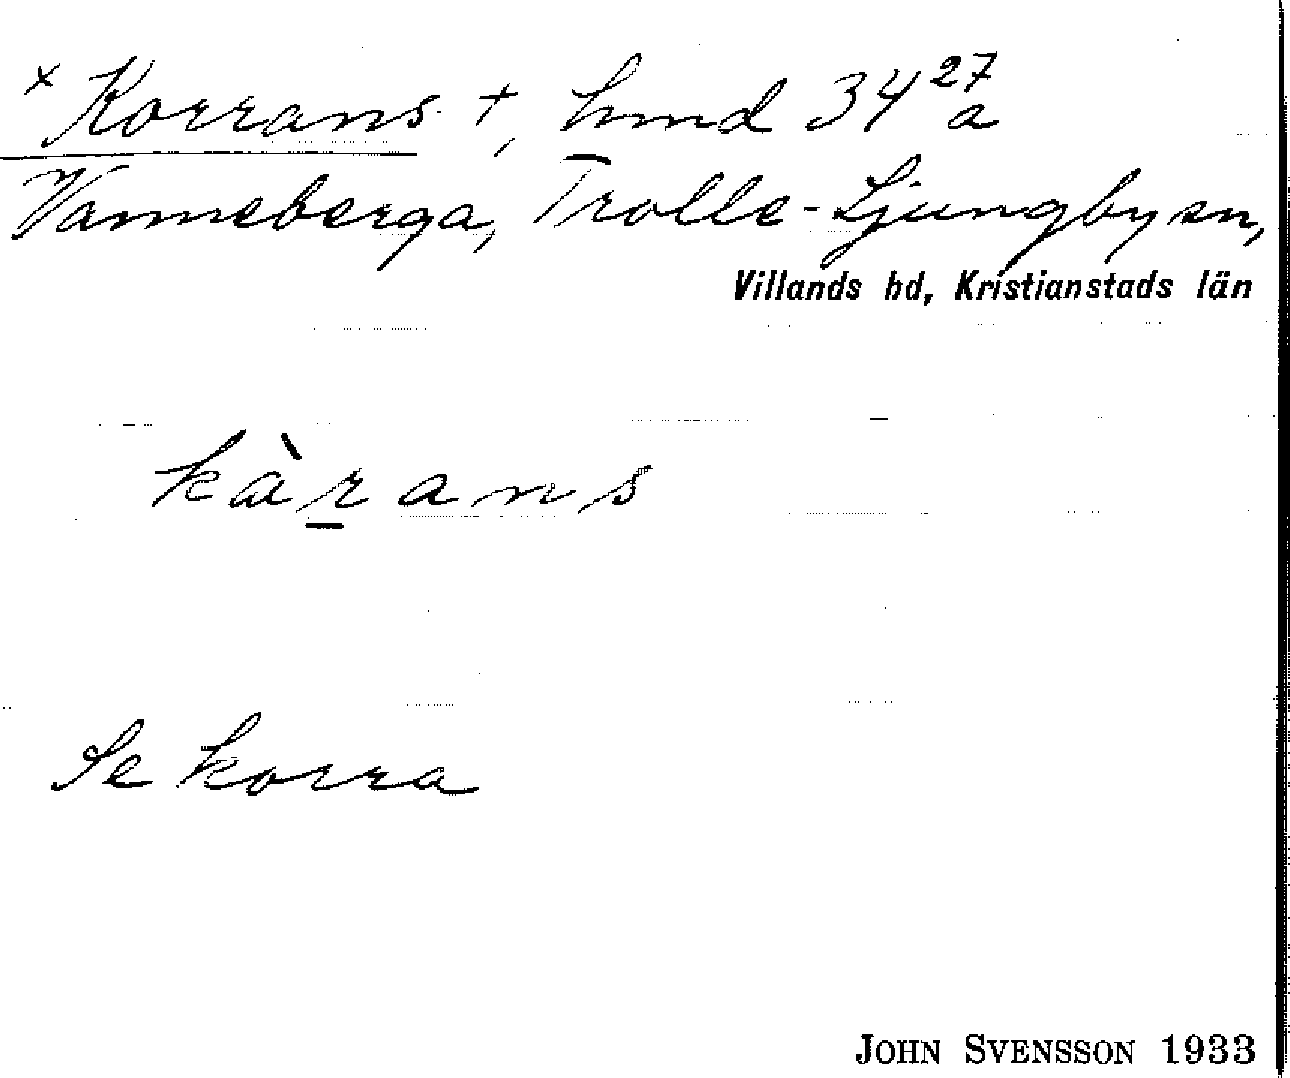 × Korrans +, hmd 34 27 a
Vanneberga, Trolle-Ljungby sn,
Villands hd, Kristianstads län
kàrans
Se korra
JOHN SVENSSON 1933